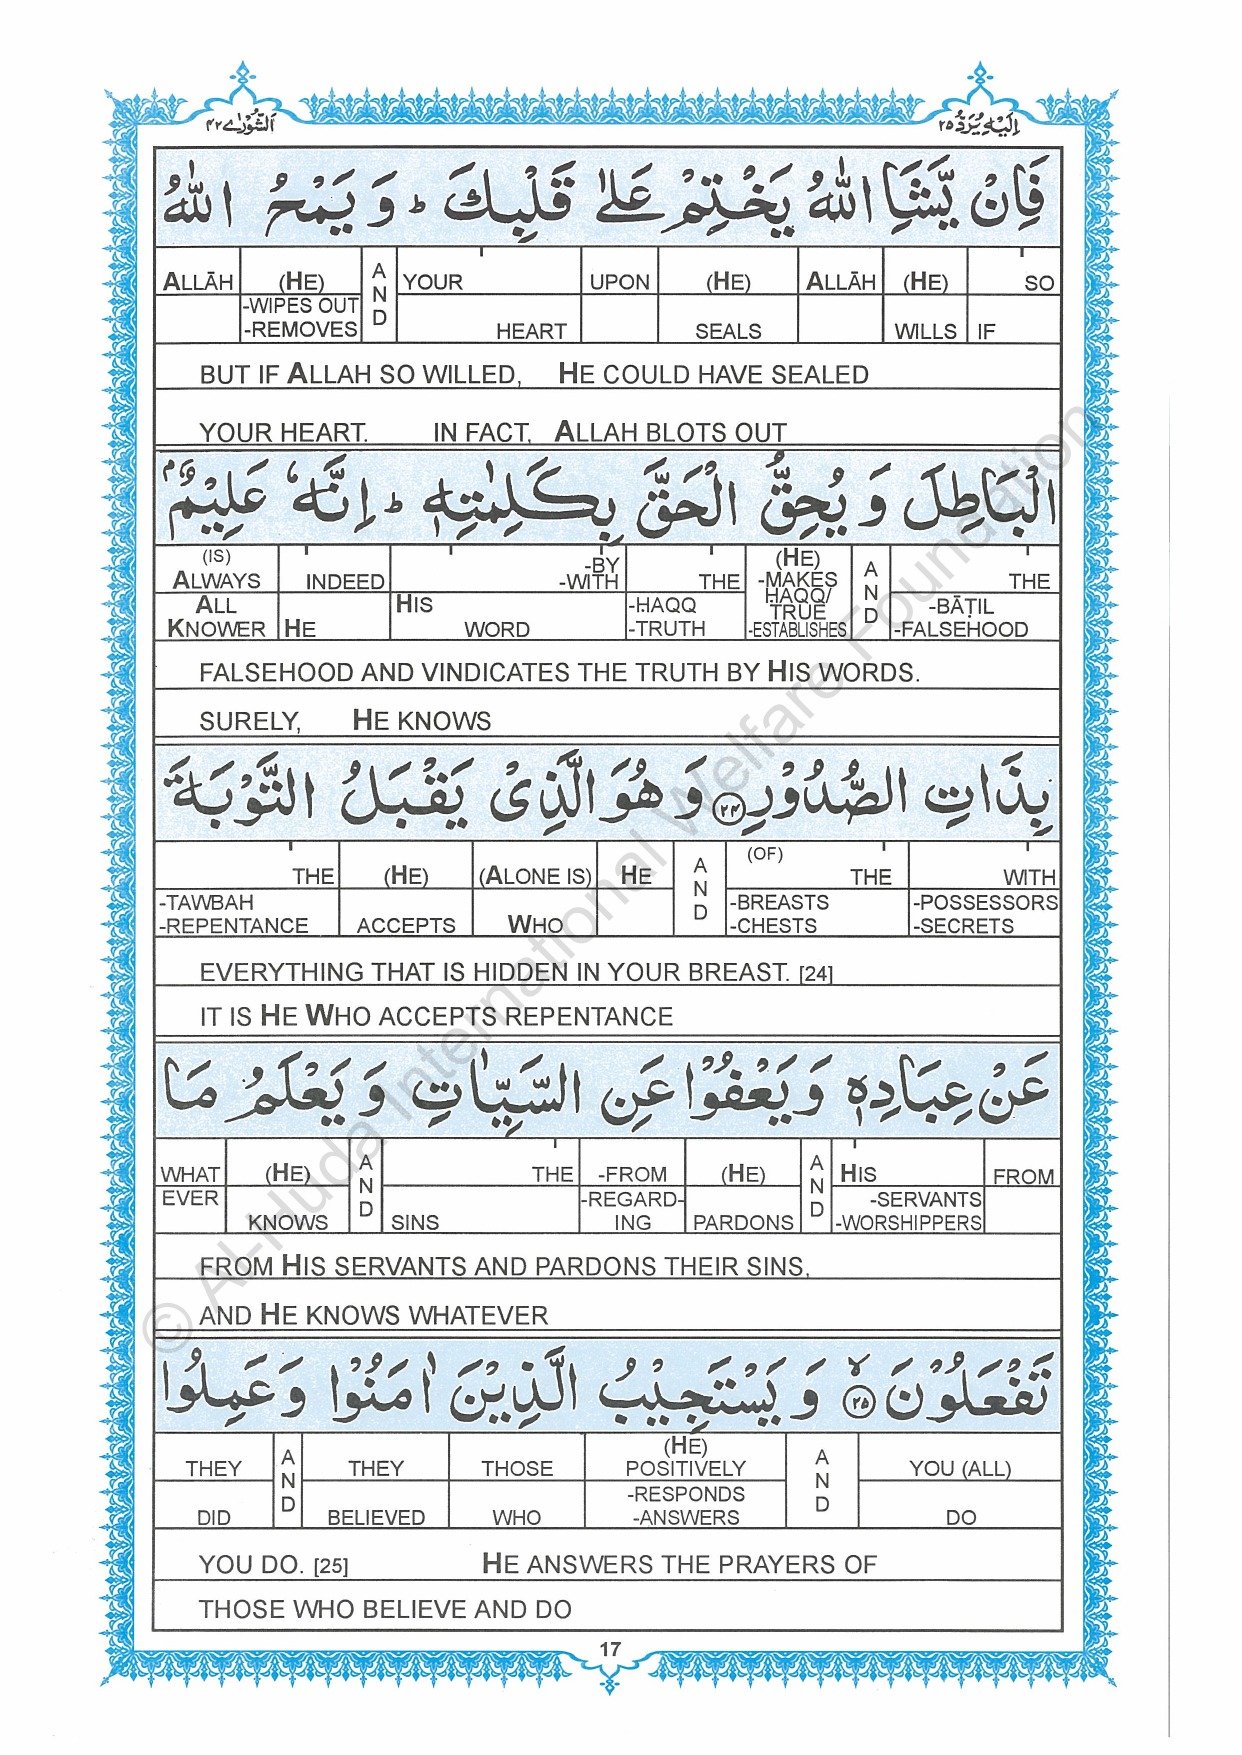 اَلشُّوْرٰى ٤٢
اِلَيْهِ يُرَدُّ ٢٥
فَاِنْ يَّشَاِ اللّٰهُ يَخْتِمْ عَلٰى قَلْبِكَ ؕ وَ يَمْحُ اللّٰهُ
ALLĀH (HE) AND YOUR UPON (HE) ALLĀH (HE) SO
-WIPES OUT
-REMOVES HEART SEALS WILLS IF
BUT IF ALLAH SO WILLED, HE COULD HAVE SEALED
YOUR HEART. IN FACT, ALLAH BLOTS OUT
الْبَاطِلَ وَ يُحِقُّ الْحَقَّ بِكَلِمٰتِهٖ ؕ اِنَّهٗ عَلِيْمٌۢ
(IS) -BY (HE)
ALWAYS INDEED -WITH THE -MAKES AND THE
ALL HIS -HAQQ ḤAQQ/ -BĀṬIL
KNOWER HE WORD -TRUTH TRUE -FALSEHOOD
-ESTABLISHES
FALSEHOOD AND VINDICATES THE TRUTH BY HIS WORDS.
SURELY, HE KNOWS
بِذَاتِ الصُّدُوْرِ ﴿٢٤﴾ وَ هُوَ الَّذِىْ يَقْبَلُ التَّوْبَةَ
(OF)
THE (HE) (ALONE IS) HE AND THE WITH
-TAWBAH -BREASTS -POSSESSORS
-REPENTANCE ACCEPTS WHO -CHESTS -SECRETS
EVERYTHING THAT IS HIDDEN IN YOUR BREAST. [24]
IT IS HE WHO ACCEPTS REPENTANCE
عَنْ عِبَادِهٖ وَ يَعْفُوْا عَنِ السَّيِّاٰتِ وَ يَعْلَمُ مَا
WHAT (HE) AND THE -FROM (HE) AND HIS FROM
EVER -REGARD- -SERVANTS
KNOWS SINS ING PARDONS -WORSHIPPERS
FROM HIS SERVANTS AND PARDONS THEIR SINS,
AND HE KNOWS WHATEVER
تَفْعَلُوْنَ ﴿٢٥﴾ۙ وَ يَسْتَجِيْبُ الَّذِيْنَ اٰمَنُوْا وَ عَمِلُوا
(HE)
THEY AND THEY THOSE POSITIVELY AND YOU (ALL)
-RESPONDS
DID BELIEVED WHO -ANSWERS DO
YOU DO. [25] HE ANSWERS THE PRAYERS OF
THOSE WHO BELIEVE AND DO
17
© Al-Huda International Welfare Foundation